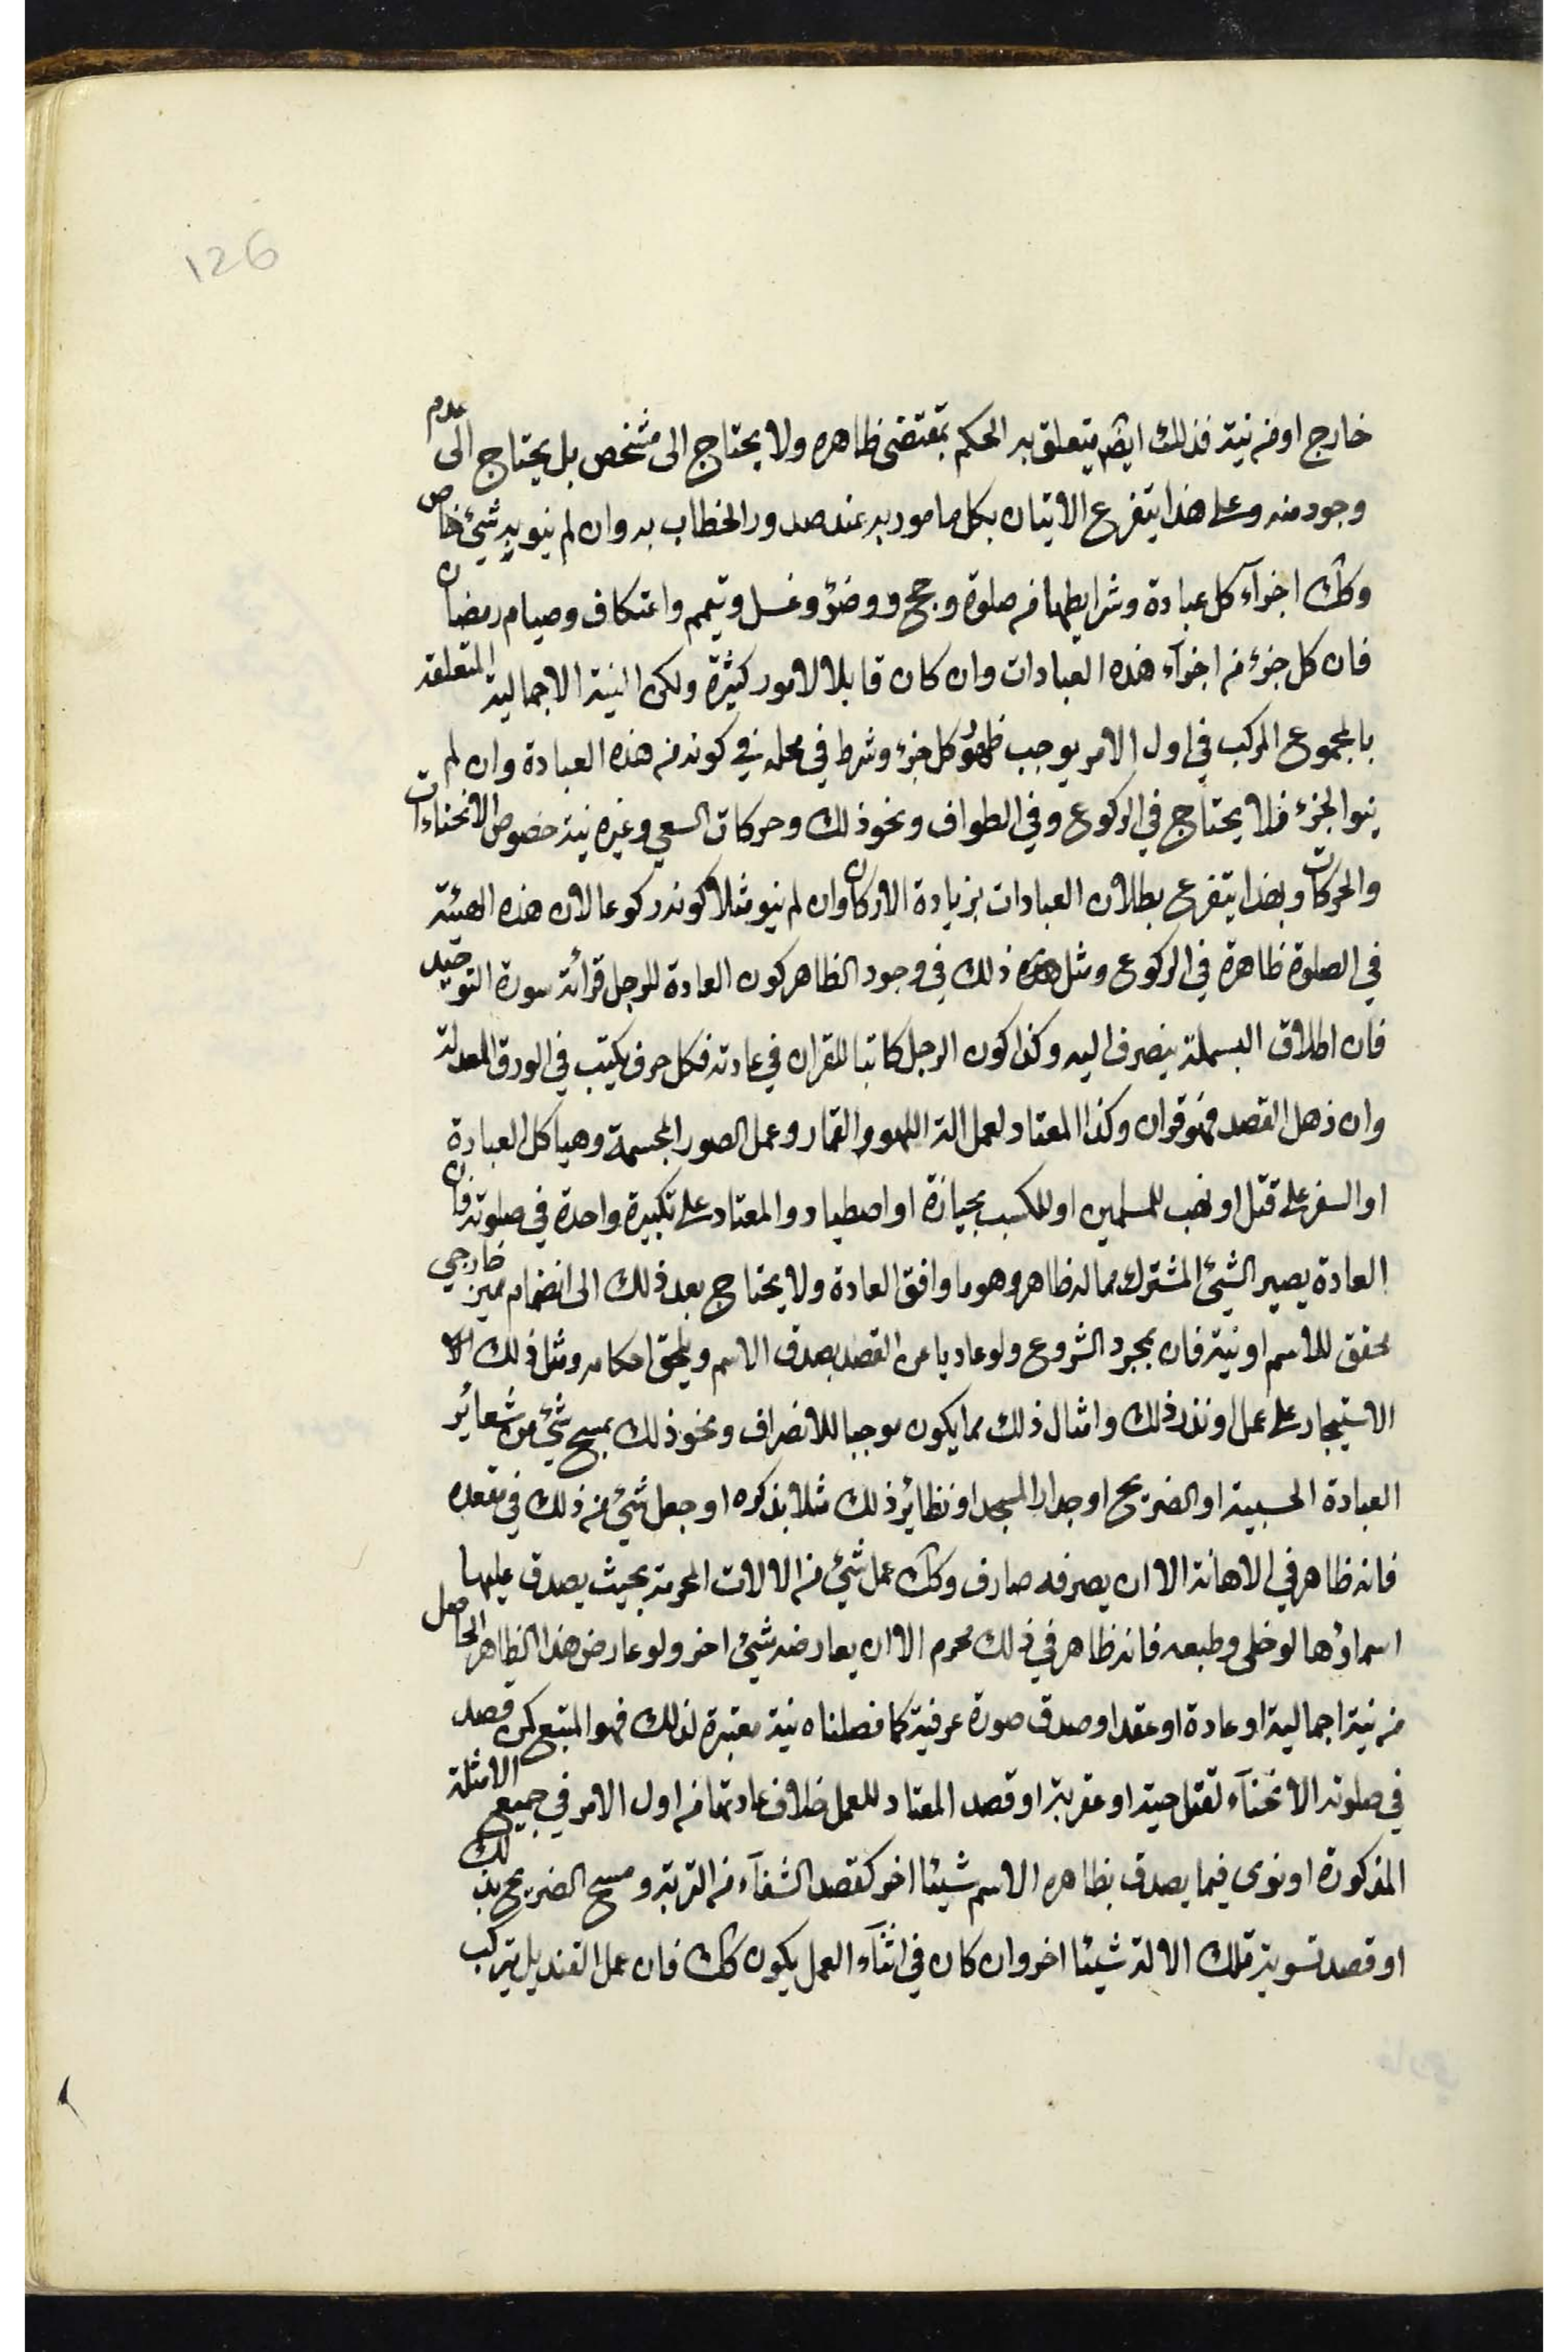 126
خارج او من نية فذلك ايضم يتعلق به الحكم بمقتضى ظاهره ولا يحتاج الى مشخص بل يحتاج الى عدم
وجود منه وعلى هذا يتفرع الاتيان بكل مامور به عند صدور الخطاب به وان لم ينو به شيئ خاص
وكك اجزآء كل عبادة وشرايطها من صلوة وحج ووضوء وغسل وتيمم واعتكاف وصيام رمضان
فان كل جزء من اجزآء هذه العبادات وان كان قابلا لامور كثيرة ولكن النية الاجمالية المتعلقة
بالمجموع المركب في اول الامر يوجب ظهور كل جزء وشرط في محله في كونه من هذه العبادة وان لم
ينو الجزء فلا يحتاج في الركوع وفي الطواف ونحو ذلك وحركات السعي وغيره نية خصوص الانحناءات
والحركات وبهذا يتفرع بطلان العبادات بزيادة الاركان وان لم ينو مثلا كونه ركوعا لان هذه الهيئة
في الصلوة ظاهرة في الركوع ومثل ذلك في وجود الظاهر كون العادة للرجل قرائة سورة التوحيد
فان اطلاق البسملة ينصرف اليه وكذا كون الرجل كاتبا للقران في عادته فكل حرف يكتب في الورق المعد له
وان ذهل القصد فهو قران وكذا المعتاد لعمل الة اللهو والقمار وعمل الصور المجسمة وهياكل العبادة
او السفر على قتل او نهب للمسلمين او للكسب بحيازة او اصطياد والمعتاد على تكبيرة واحدة في صلوته فان
العادة يصير الشيئ المشترك مما له ظاهر وهو ما وافق العادة ولا يحتاج بعد ذلك الى انضمام مميز خارجي
محقق للاسم او نية فان بمجرد الشروع ولو عاديا عن القصد يصدق الاسم ويلحق احكامه ومثل ذلك
الاستيجار على عمل او نذر ذلك وامثال ذلك مما يكون موجبا للانصراف ونحو ذلك بمسح شيئ من شعائر
العبادة الحسبية او الضريح او جدار المسجد او نظائر ذلك مثلا بذكره او جعل شيئ من ذلك في مقعده
فانه ظاهر في الاهانة الا ان يصرفه صارف وكك عمل شيئ من الالات المحرمة بحيث يصدق عليها
اسماؤها لو خلى وطبعه فانه ظاهر في ذلك محرم الا ان يعارضه شيئ اخر ولو عارض هذا الظاهر الحاصل
من نية اجمالية او عادة او عقد او صدق صورة عرفية كما فصلناه نية معتبرة لذلك فهو المتبع كمن قصد
في صلوته الانحنآء لقتل حية او عقربة او قصد المعتاد للعمل خلاف عادتها من اول الامر في جميع الامثلة
المذكورة او نوى فيما يصدق بظاهره الاسم شيئا اخر كقصد الشفآء من التربة ومسح الضريح بذلك
او قصد تسوية تلك الالة شيئا اخر وان كان في اثنآء العمل يكون كك فان عمل القنديل بتركيب